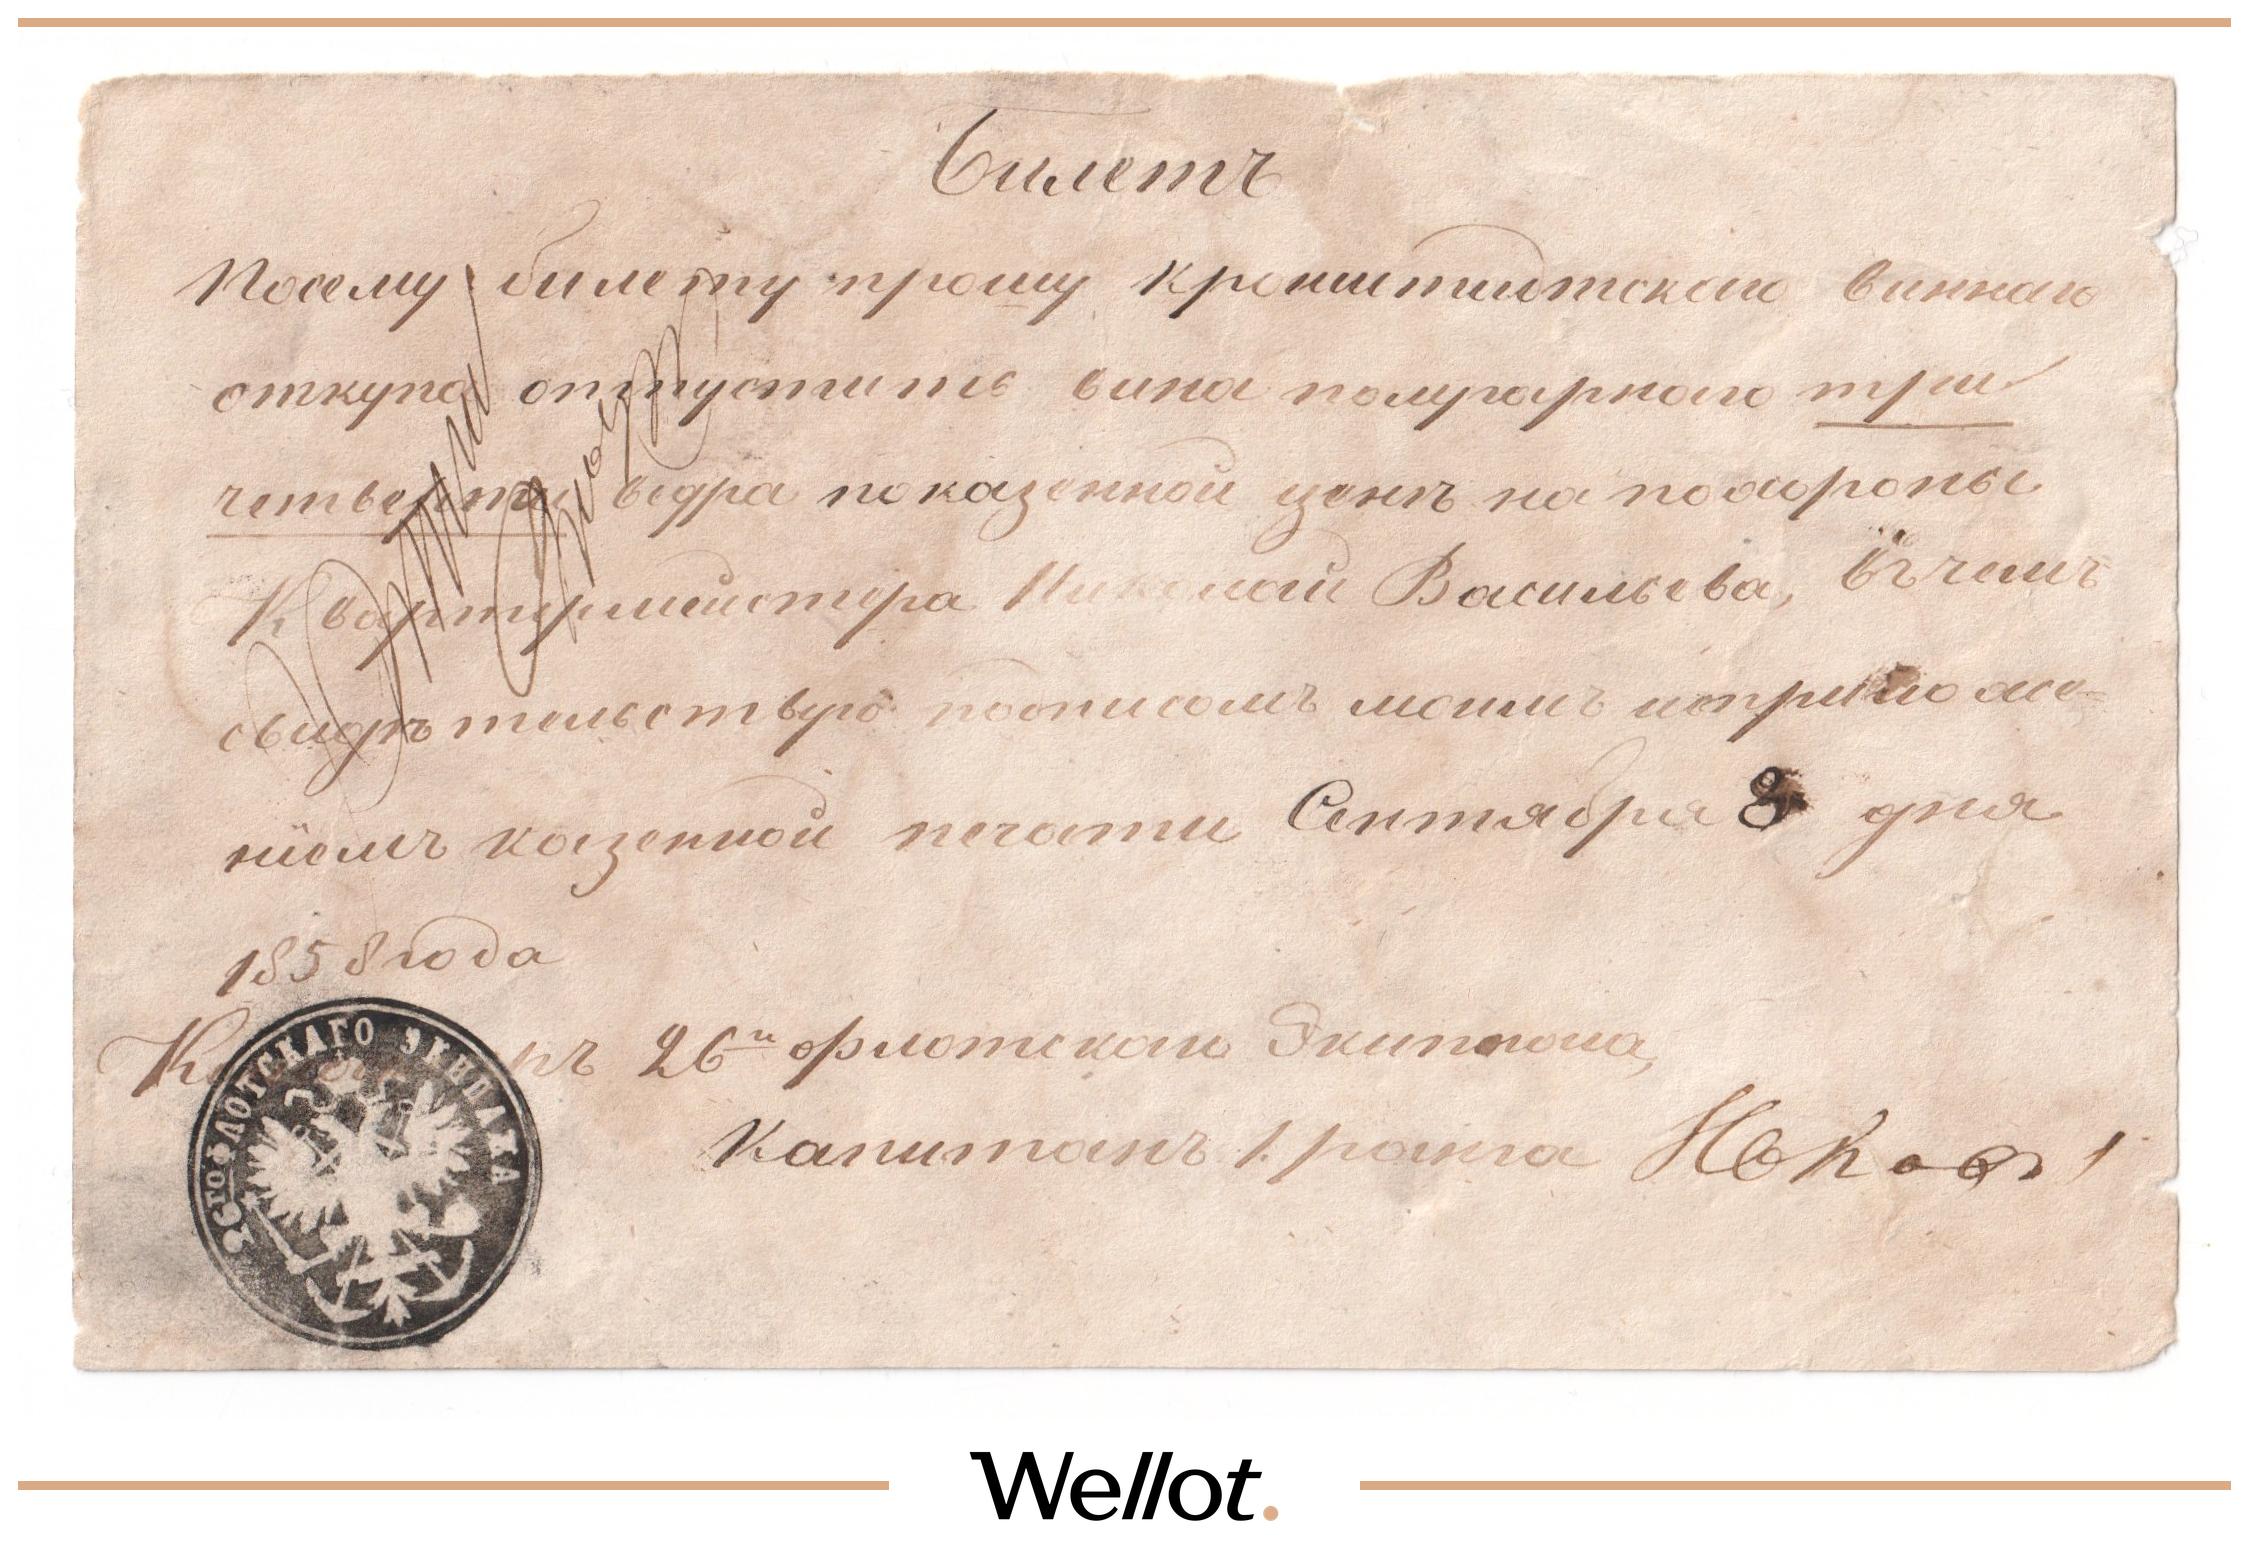 Билетъ
Посему билету прошу кронштадтскаго виннаго
откупа отпустить вина полугарнаго три
четверти ведра показенной ценъ на похороны
Квартирмейстера Николай Васильева, въ чемъ
свидѣтельствую подписомъ моимъ и приложе-
ніемъ казенной печати Сентября 8 дня
1858 года
26го флотскаго Экипажа,
Капитанъ 1 ранга
ФЛОТСКАГО ЭКИПАЖА
Wellot.